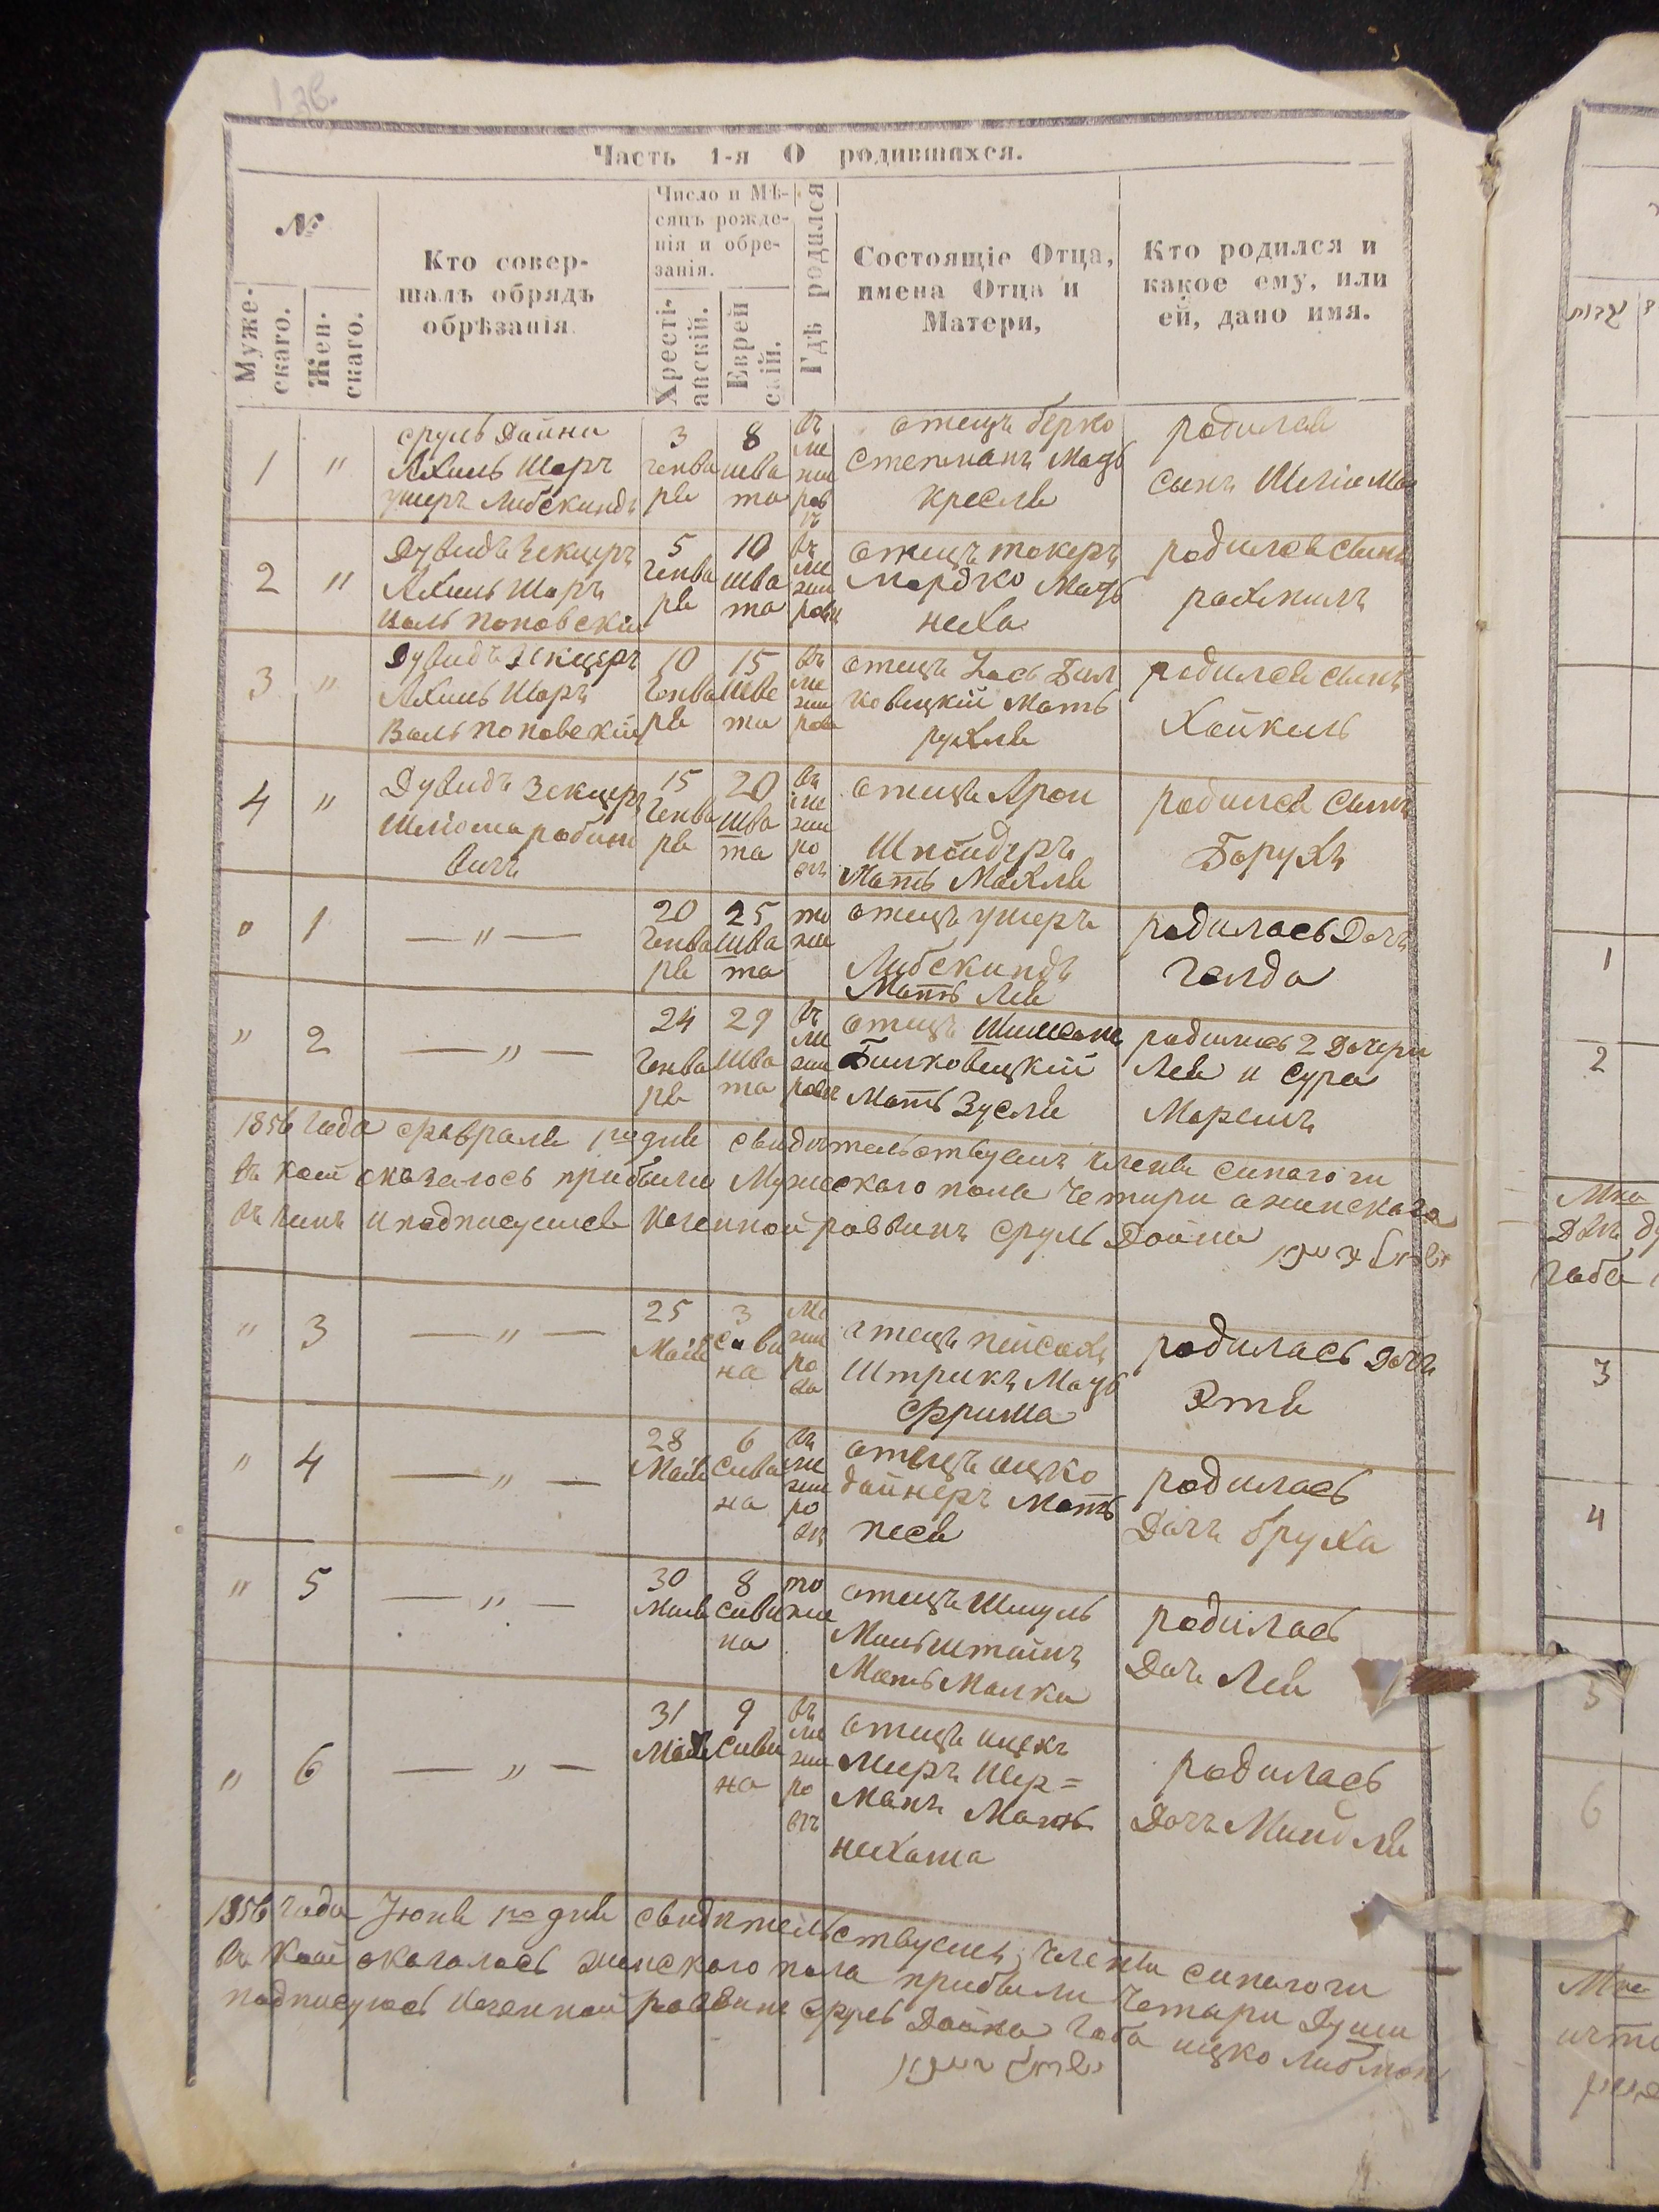 Часть 1-я О родившихся.
№
Муже-
скаго.
Жен-
скаго.
Кто совер-
шалъ обрядъ
обрѣзанія
Число и Мѣ-
сяцъ рожде-
нія и обре-
занія.
Хресті-
анскій.
Еврей
скій.
Гдѣ родился
Состоящіе Отца,
имена Отца и
Матери,
Кто родился и
какое ему, или
ей, дано имя.
1 "
сруль Дайни
Ахиль Шоръ
ушеръ Либскиндъ
3
генва
ря
8
шва
та
въ
ме
жи
ров
ъ
отецъ берко
Степманъ Мать
кресля
родился
сынъ Шліома
2 "
Дувидъ Зекцеръ
Ахиль Шоръ
Валь Поповскій
5
генва
ря
10
шва
та
въ
ме
жи
ровъ
отецъ токеръ
Мордко Мать
неха
родился сынъ
рахмиль
3 "
Дувидъ Зекцеръ
Ахиль Шоръ
Валь Поповскій
10
генва
ря
15
шва
та
въ
ме
жи
рове
отецъ Бил
ковецкій Мать
рухля
родился сынъ
Хайкель
4 "
Дувидъ Зекцеръ
Шліома рабино
вичъ
15
генва
ря
20
шва
та
въ
ме
жи
ро
въ
отецъ Арон
Шнайдеръ
Мать Махля
родился сынъ
Борухъ
" 1
— " —
20
генва
ря
25
шва
та
то
же
отецъ ушеръ
Либскиндъ
Мать Лея
родилась Дочь
голда
" 2
— " —
24
генва
ря
29
шва
та
въ
ме
жи
ровъ
отецъ Шимона
Билковецкій
Мать Зусля
родились 2 Дочери
Лея и сура
Мореимъ
1856 года февраля 1го дня свидѣтельствуемъ члены синагоги
въ коей оказалось прибыли Мужескаго пола четири а женскаго
въ чемъ и подписуемся Казенной раввинъ сруль Дайна
" 3
— " —
25
Мая
3
сива
на
Ме
жи
ро
ва
отецъ пейсахъ
Штрикъ Мать
фрима
родилась Дочь
Этя
" 4
— " —
28
Мая
6
сива
на
въ
ме
жи
ро
въ
отецъ ицко
дайнеръ Мать
песя
родилась
Дочъ бруха
" 5
— " —
30
Мая
8
сива
на
то
же
отецъ Шмуль
Мильштейнъ
Мать Малка
родилась
Дочь Лея
" 6
— " —
31
Мая
9
сива
на
въ
ме
жи
ро
въ
отецъ ицекъ
Мееръ Шер=
Манъ Мать
нехама
родилась
Дочъ Миндля
1856 года Юня 1го дня свидѣтельствуемъ члены синагоги
въ коей оказалось женскаго пола прибыли четари души
подписуюсь Казенной раввинъ сруль Дайна габа ицко Либман
1
2
3
4
5
6